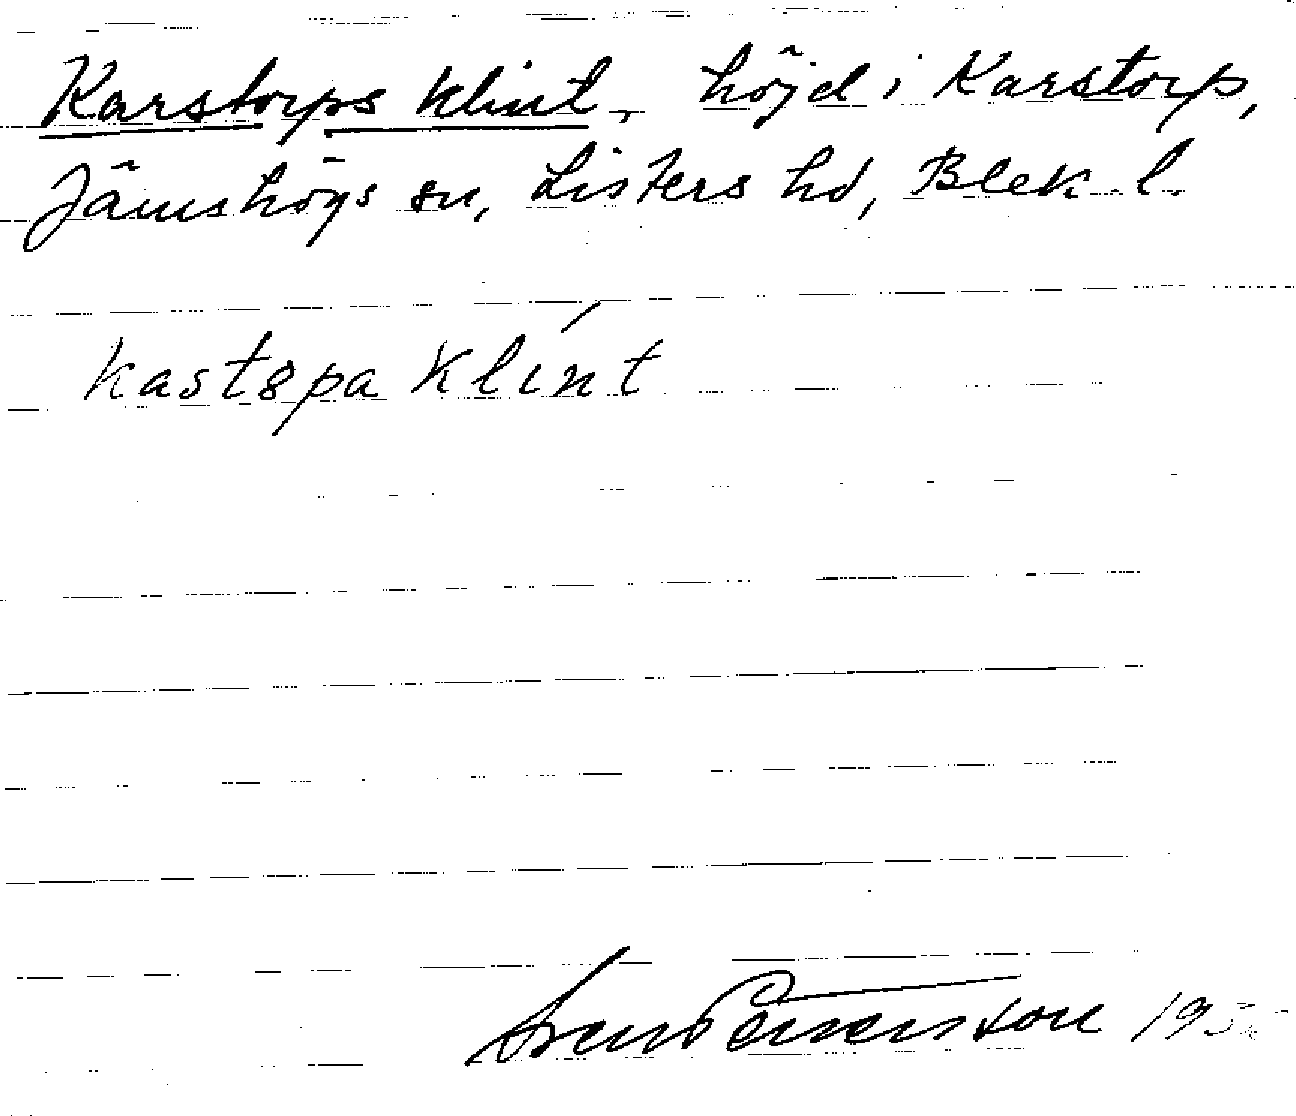 Karstorps klint, höjd i Karstorp,
Jämshögs sn, Listers hd, Blek. l.
kastspa klínt
Sven Benson 19